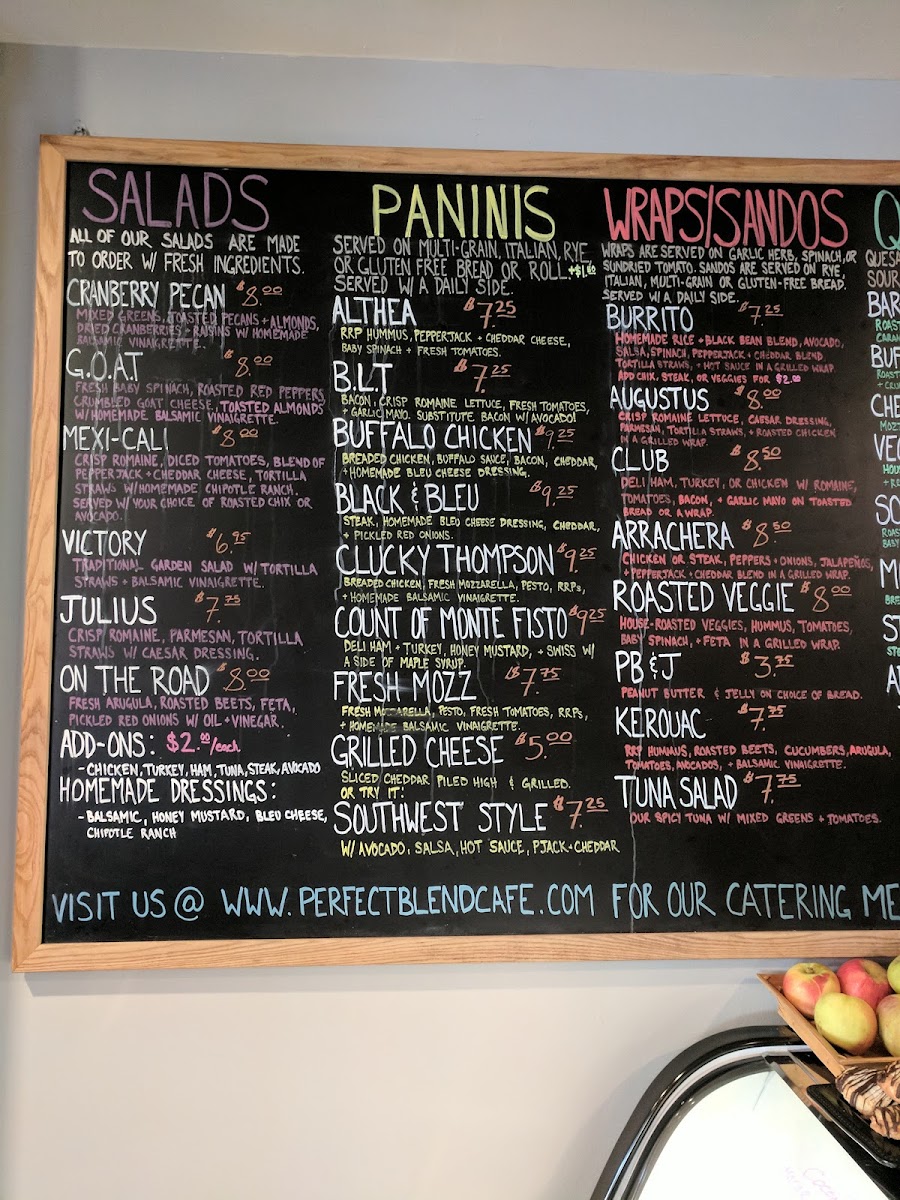 SALADS
ALL OF OUR SALADS ARE MADE
TO ORDER W/ FRESH INGREDIENTS.
CRANBERRY PECAN $8.00
MIXED GREENS, TOASTED PECANS + ALMONDS,
DRIED CRANBERRIES + RAISINS W/ HOMEMADE
BALSAMIC VINAIGRETTE.
G.O.A.T $8.00
FRESH BABY SPINACH, ROASTED RED PEPPERS
CRUMBLED GOAT CHEESE, TOASTED ALMONDS
W/ HOMEMADE BALSAMIC VINAIGRETTE.
MEXI-CALI $8.00
CRISP ROMAINE, DICED TOMATOES, BLEND OF
PEPPERJACK + CHEDDAR CHEESE, TORTILLA
STRAWS W/HOMEMADE CHIPOTLE RANCH.
SERVED W/ YOUR CHOICE OF ROASTED CHIX OR
AVOCADO.
VICTORY $6.95
TRADITIONAL GARDEN SALAD W/ TORTILLA
STRAWS + BALSAMIC VINAIGRETTE.
JULIUS $7.75
CRISP ROMAINE, PARMESAN, TORTILLA
STRAWS W/ CAESAR DRESSING.
ON THE ROAD $8.00
FRESH ARUGULA, ROASTED BEETS, FETA,
PICKLED RED ONIONS W/ OIL + VINEGAR.
ADD-ONS: $2.00/each
- CHICKEN, TURKEY, HAM, TUNA, STEAK, AVOCADO
HOMEMADE DRESSINGS:
- BALSAMIC, HONEY MUSTARD, BLEU CHEESE,
CHIPOTLE RANCH
PANINIS
SERVED ON MULTI-GRAIN, ITALIAN, RYE
OR GLUTEN FREE BREAD OR ROLL. +$1.00
SERVED W/ A DAILY SIDE.
ALTHEA $7.25
RRP HUMMUS, PEPPERJACK + CHEDDAR CHEESE,
BABY SPINACH + FRESH TOMATOES.
B.L.T $7.25
BACON, CRISP ROMAINE LETTUCE, FRESH TOMATOES,
+ GARLIC MAYO. SUBSTITUTE BACON W/ AVOCADO!
BUFFALO CHICKEN $9.25
BREADED CHICKEN, BUFFALO SAUCE, BACON, CHEDDAR,
+ HOMEMADE BLEU CHEESE DRESSING.
BLACK & BLEU $9.25
STEAK, HOMEMADE BLEU CHEESE DRESSING, CHEDDAR,
+ PICKLED RED ONIONS.
CLUCKY THOMPSON $9.25
BREADED CHICKEN, FRESH MOZZARELLA, PESTO, RRPs,
+ HOMEMADE BALSAMIC VINAIGRETTE.
COUNT OF MONTE FISTO $9.25
DELI HAM + TURKEY, HONEY MUSTARD, + SWISS W/
A SIDE OF MAPLE SYRUP.
FRESH MOZZ $7.75
FRESH MOZZARELLA, PESTO, FRESH TOMATOES, RRPs,
+ HOMEMADE BALSAMIC VINAIGRETTE.
GRILLED CHEESE $5.00
SLICED CHEDDAR PILED HIGH & GRILLED.
OR TRY IT:
SOUTHWEST STYLE $7.25
W/ AVOCADO, SALSA, HOT SAUCE, PJACK + CHEDDAR
WRAPS/SANDOS
WRAPS ARE SERVED ON GARLIC HERB, SPINACH, OR
SUNDRIED TOMATO. SANDOS ARE SERVED ON RYE,
ITALIAN, MULTI-GRAIN OR GLUTEN-FREE BREAD.
SERVED W/ A DAILY SIDE.
BURRITO $7.25
HOMEMADE RICE + BLACK BEAN BLEND, AVOCADO,
SALSA, SPINACH, PEPPERJACK + CHEDDAR BLEND
TORTILLA STRAWS, + HOT SAUCE IN A GRILLED WRAP.
ADD CHIX, STEAK, OR VEGGIES FOR $2.00
AUGUSTUS $8.00
CRISP ROMAINE LETTUCE, CAESAR DRESSING,
PARMESAN, TORTILLA STRAWS, + ROASTED CHICKEN
IN A GRILLED WRAP.
CLUB $8.50
DELI HAM, TURKEY, OR CHICKEN W/ ROMAINE,
TOMATOES, BACON, + GARLIC MAYO ON TOASTED
BREAD OR A WRAP.
ARRACHERA $8.50
CHICKEN OR STEAK, PEPPERS + ONIONS, JALAPEÑOS,
+ PEPPERJACK + CHEDDAR BLEND IN A GRILLED WRAP.
ROASTED VEGGIE $8.00
HOUSE-ROASTED VEGGIES, HUMMUS, TOMATOES,
BABY SPINACH, + FETA IN A GRILLED WRAP.
PB & J $3.75
PEANUT BUTTER & JELLY ON CHOICE OF BREAD.
KEROUAC $7.75
RRP HUMMUS, ROASTED BEETS, CUCUMBERS, ARUGULA,
TOMATOES, AVOCADOS, + BALSAMIC VINAIGRETTE.
TUNA SALAD $7.75
OUR SPICY TUNA W/ MIXED GREENS + TOMATOES.
VISIT US @ WWW.PERFECTBLENDCAFE.COM FOR OUR CATERING ME